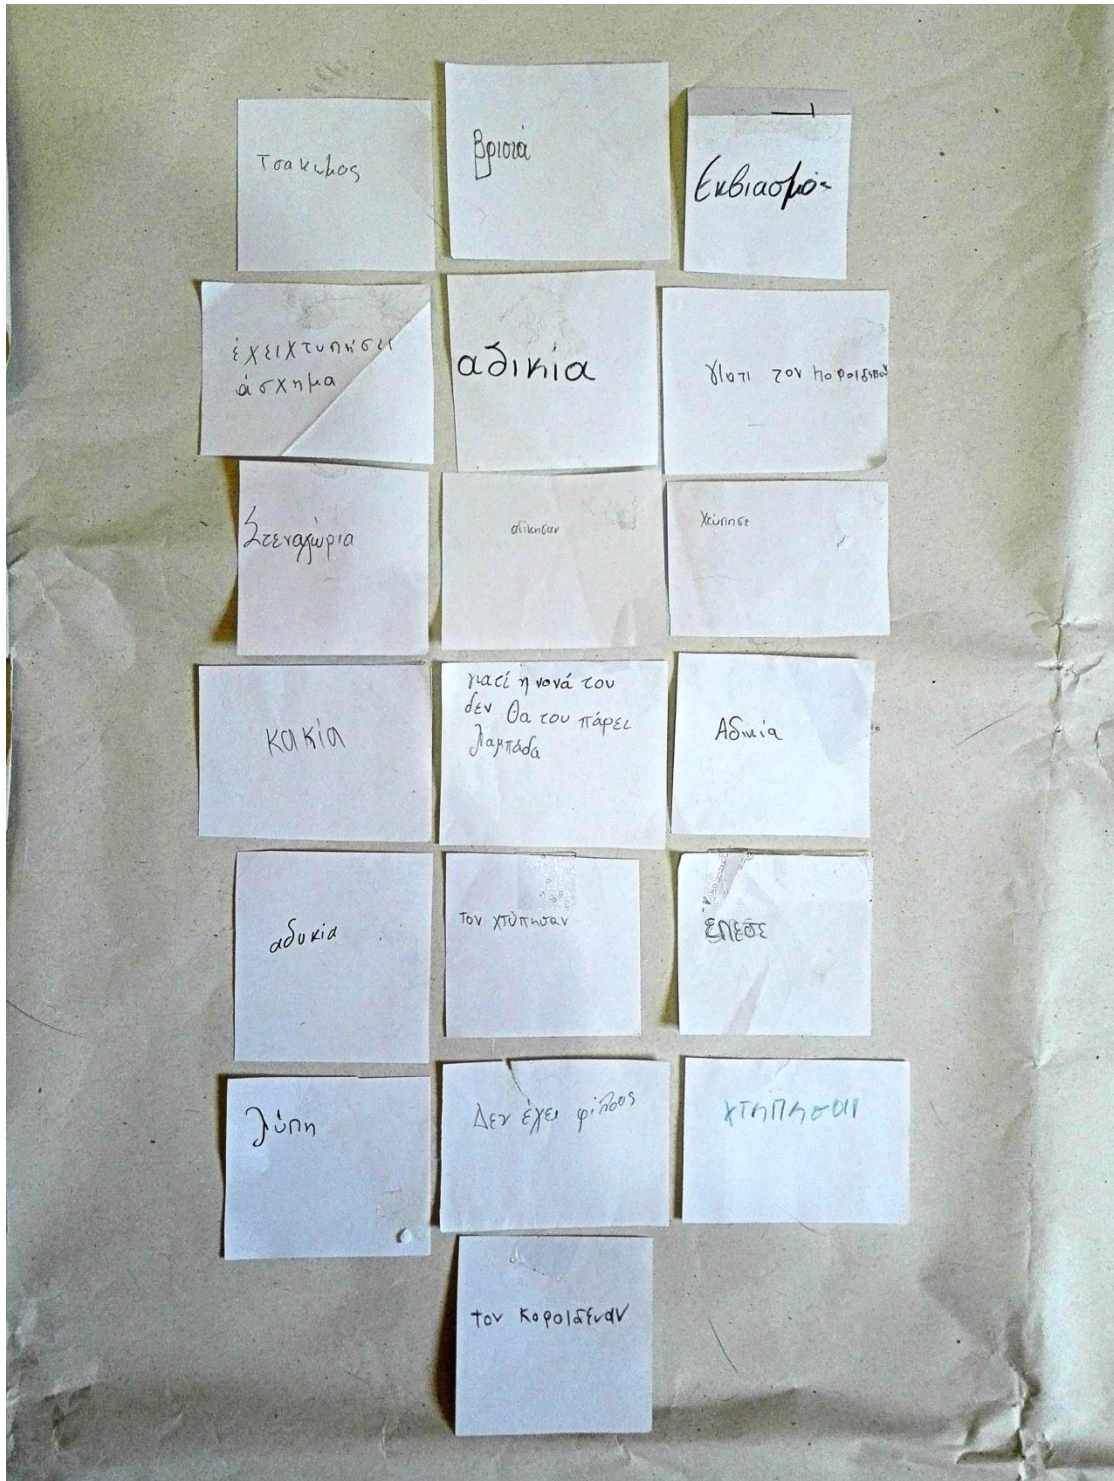 Τσακωμος
βρισιά
Εκβιασμός
έχει χτυπήσει
άσχημα
αδικία
γιατι τον κοροιδευαν
Στεναχώρια
αδικησαν
χτύπησε
κακία
γιατί η νονά του
δεν θα του πάρει
λαμπάδα
Αδικία
αδυκία
τον χτύπησαν
ΕΠΕΣΕ
λύπη
Δεν έχει φίλους
χτηπησαν
τον κοροιδευαν